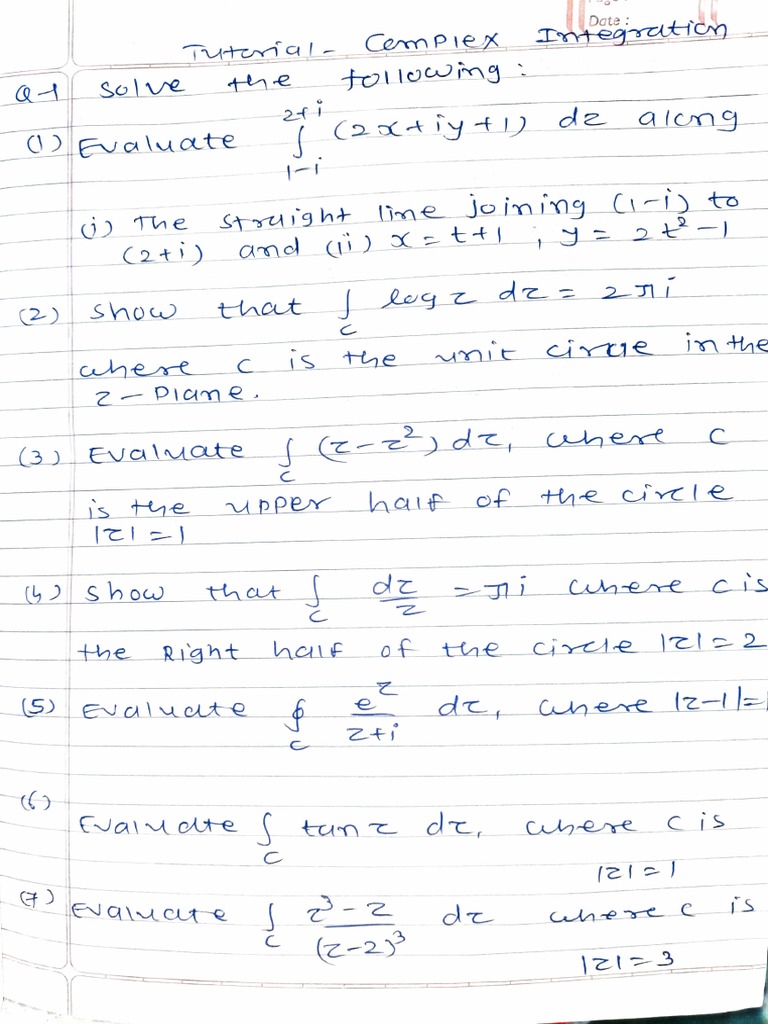 Date :
Tutorial - Complex Integration
Q-1 Solve the following :
(1) Evaluate ∫_{1-i}^{2+i} (2x+iy+1) dz along
(i) The straight line joining (1-i) to
(2+i) and (ii) x = t+1 , y = 2t²-1
(2) Show that ∫_C log z dz = 2πi
where C is the unit circle in the
z-plane.
(3) Evaluate ∫_C (z-z²) dz, where C
is the upper half of the circle
|z| = 1
(4) Show that ∫_C dz/z = πi where C is
the Right half of the circle |z| = 2
(5) Evaluate ∮_C e^z/(z+i) dz, where |z-1|=1
(6)
Evaluate ∫_C tan z dz, where C is
|z| = 1
(7) Evaluate ∫_C (z³-z)/(z-2)³ dz where C is
|z| = 3